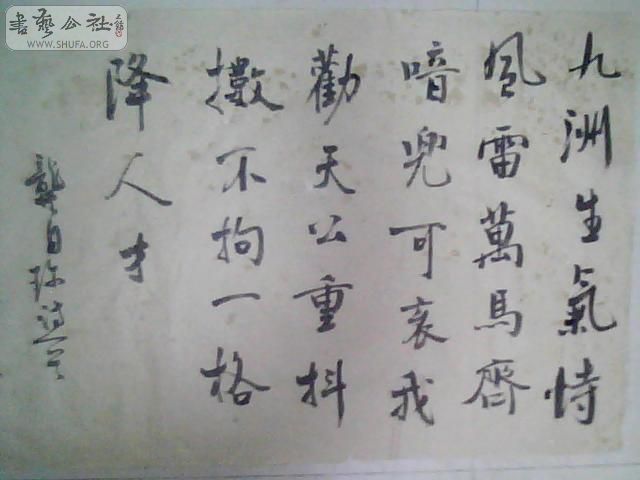 書藝公社
WWW.SHUFA.ORG
九洲生氣恃
風雷萬馬齊
喑兜可哀我
勸天公重抖
擻不拘一格
降人才
龔自珍詩